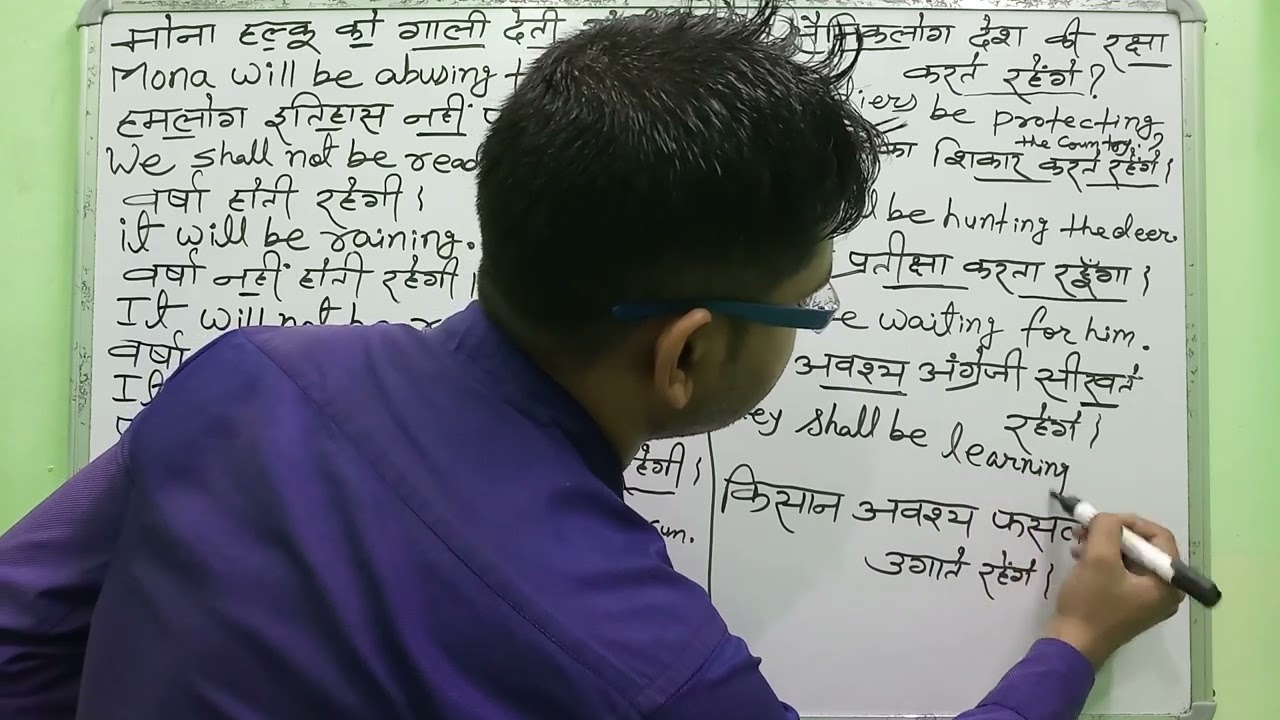 मोना हल्कू को गाली देती
Mona will be abusing
हमलोग इतिहास नहीं
We shall not be read
वर्षा होती रहेगी।
it will be raining.
वर्षा नहीं होती रहेगी।
It will not be
वर्षा
It
हेगी।
sun.
सैनिकलोग देश की रक्षा
करते रहेंगे?
diers be protecting
the country?
का शिकार करते रहेंगे।
be hunting the deer.
प्रतीक्षा करता रहूँगा।
e waiting for him.
अवश्य अंग्रेजी सीखते
रहेंगे।
ey shall be learning
किसान अवश्य फसल
उगाते रहेंगे।